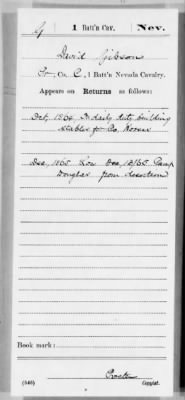 G | 1 Batt'n Cav. | Nev.
David Gibson
Co. C, 1 Batt'n Nevada Cavalry.
Appears on Returns as follows:
Oct, 1864 On daily duty building
stables for Co. Horses
Dec, 1865 Dec 18/65 Camp
from desertion
Book mark:
(546)
Copyist.